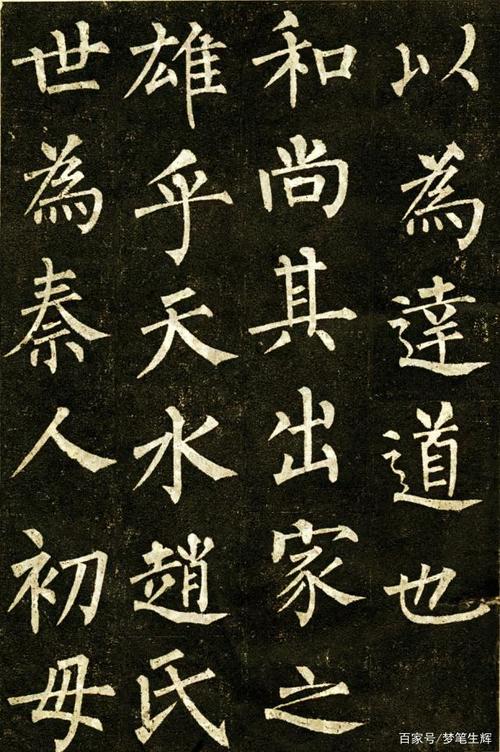 以為達道也
和尚其出家之
雄乎天水趙氏
世為秦人初母
百家号/梦笔生辉